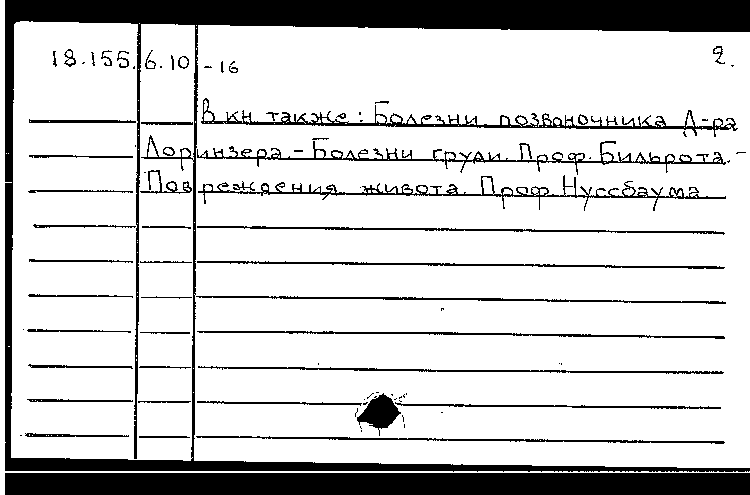 18.155.6.10-16 2.
В кн также: Болезни позвоночника Д-ра
Лоринзера.- Болезни груди. Проф. Бильрота.-
Повреждения живота. Проф. Нуссбаума.